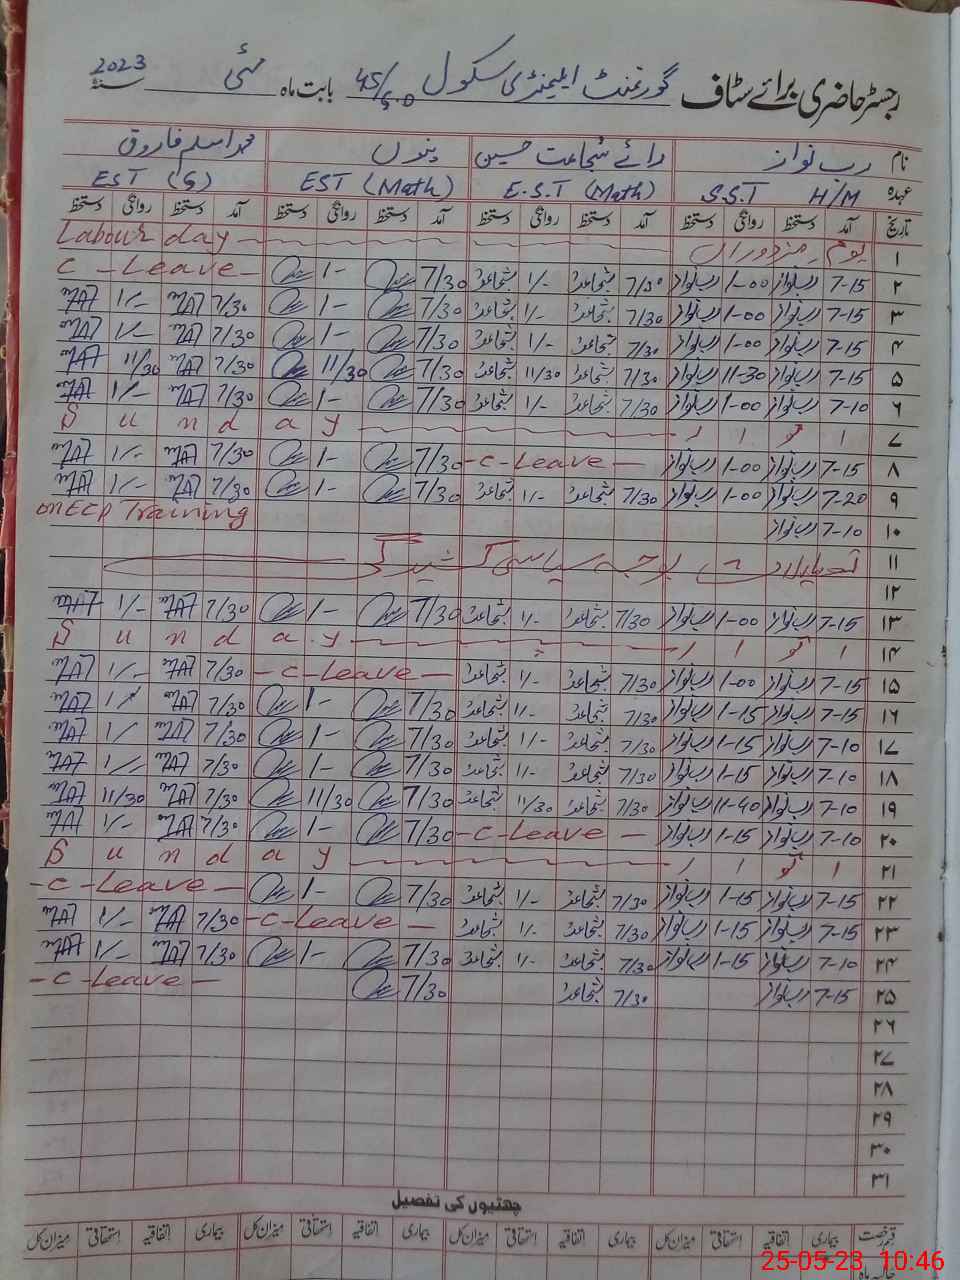 رجسٹر حاضری برائے سٹاف گورنمنٹ ایلیمنٹری سکول 45/5.0 بابت ماہ مئی سنہ 2023
نام رب نواز رائے شجاعت حسین محمد اسلم فاروق
عہدہ S.S.T H/M E.S.T (Math) EST (Math) EST (S)
تاریخ آمد دستخط روانگی دستخط آمد دستخط روانگی دستخط آمد دستخط روانگی دستخط آمد دستخط روانگی دستخط
۱ یوم مزدوراں Labour day
۲ 7-15 رب نواز 1-00 رب نواز 7/30 شجاعت 1/- شجاعت 7/30 1- C-Leave
۳ 7-15 رب نواز 1-00 رب نواز 7/30 شجاعت 1/- شجاعت 7/30 1- 7/30 1/-
۴ 7-15 رب نواز 1-00 رب نواز 7/30 شجاعت 1/- شجاعت 7/30 1- 7/30 1/-
۵ 7-15 رب نواز 11-30 رب نواز 7/30 شجاعت 11/30 شجاعت 7/30 11/30 7/30 11/30
۶ 7-10 رب نواز 1-00 رب نواز 7/30 شجاعت 1/- شجاعت 7/30 1- 7/30 1/-
۷ ا تو ا ر Sunday
۸ 7-15 رب نواز 1-00 رب نواز -C-Leave- 7/30 1- 7/30 1/-
۹ 7-20 رب نواز 1-00 رب نواز 7/30 شجاعت 1/- شجاعت 7/30 1- 7/30 1/-
۱۰ 7-10 رب نواز Training
۱۱ تعطیلات بوجہ سیاسی کشیدگی
۱۲
۱۳ 7-15 رب نواز 1-00 رب نواز 7/30 شجاعت 1/- شجاعت 7/30 1- 7/30 1/-
۱۴ ا تو ا ر Sunday
۱۵ 7-15 رب نواز 1-00 رب نواز 7/30 شجاعت 1/- شجاعت -C-Leave- 7/30 1/-
۱۶ 7-15 رب نواز 1-15 رب نواز 7/30 شجاعت 1/- شجاعت 7/30 1- 7/30 1/
۱۷ 7-10 رب نواز 1-15 رب نواز 7/30 شجاعت 1/- شجاعت 7/30 1- 7/30 1/
۱۸ 7-10 رب نواز 1-15 رب نواز 7/30 شجاعت 1/- شجاعت 7/30 1- 7/30 1/-
۱۹ 7-10 رب نواز 11-40 رب نواز 7/30 شجاعت 11/30 شجاعت 7/30 11/30 7/30 11/30
۲۰ 7-10 رب نواز 1-15 رب نواز -C-Leave- 7/30 1- 7/30 1/-
۲۱ ا تو ا ر Sunday
۲۲ 7-15 رب نواز 1-15 رب نواز 7/30 شجاعت 1/- شجاعت 7/30 1- -C-Leave-
۲۳ 7-15 رب نواز 1-15 رب نواز 7/30 شجاعت 1/- شجاعت -C-Leave- 7/30 1/-
۲۴ 7-10 رب نواز 1-15 رب نواز 7/30 شجاعت 1/- شجاعت 7/30 1- 7/30 1/-
۲۵ 7-15 رب نواز 7/30 شجاعت 7/30 -C-Leave-
۲۶
۲۷
۲۸
۲۹
۳۰
۳۱
چھٹیوں کی تفصیل
قسم رخصت بیماری اتفاقیہ استحقاقی میزان کل بیماری اتفاقیہ استحقاقی میزان کل بیماری اتفاقیہ استحقاقی میزان کل بیماری اتفاقیہ استحقاقی میزان کل
25-05-23 10:46